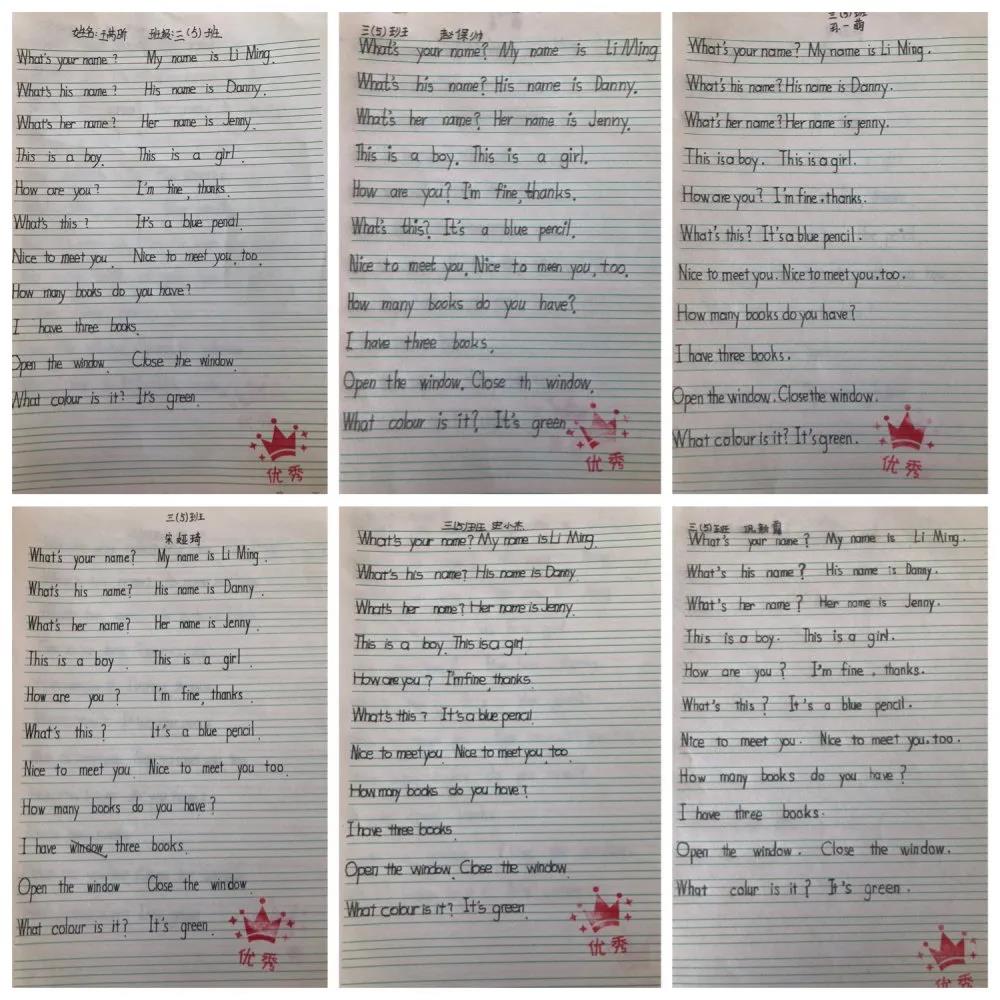 姓名: 班级:三(5)班
What's your name? My name is Li Ming.
What's his name? His name is Danny.
What's her name? Her name is Jenny.
This is a boy. This is a girl.
How are you? I'm fine, thanks.
What's this? It's a blue pencil.
Nice to meet you. Nice to meet you, too.
How many books do you have?
I have three books.
Open the window. Close the window.
What colour is it? It's green.
优秀
三(5)班
What's your name? My name is Li Ming
What's his name? His name is Danny.
What's her name? Her name is Jenny.
This is a boy. This is a girl.
How are you? I'm fine, thanks.
What's this? It's a blue pencil.
Nice to meet you. Nice to meen you, too.
How many books do you have?
I have three books.
Open the window. Close th window.
What colour is it? It's green.
优秀
三(5)班
孙一萌
What's your name? My name is Li Ming.
What's his name? His name is Danny.
What's her name? Her name is jenny.
This is a boy. This is a girl.
How are you? I'm fine, thanks.
What's this? It's a blue pencil.
Nice to meet you. Nice to meet you, too.
How many books do you have?
I have three books.
Open the window. Close the window.
What colour is it? It's green.
优秀
三(5)班
宋娅琦
What's your name? My name is Li Ming.
What's his name? His name is Danny.
What's her name? Her name is Jenny.
This is a boy. This is a girl.
How are you? I'm fine, thanks.
What's this? It's a blue pencil.
Nice to meet you. Nice to meet you too.
How many books do you have?
I have window three books.
Open the window Close the window.
What colour is it? It's green.
优秀
三(5)班 史小杰
What's your name? My name is Li Ming.
What's his name? His name is Danny.
What's her name? Her name is Jenny.
This is a boy. This is a girl.
How are you? I'm fine, thanks.
What's this? It's a blue pencil.
Nice to meet you. Nice to meet you, too.
How many books do you have?
I have three books.
Open the window. Close the window.
What colour is it? It's green.
优秀
三(5)班
What's your name? My name is Li Ming.
What's his name? His name is Danny.
What's her name? Her name is Jenny.
This is a boy. This is a girl.
How are you? I'm fine, thanks.
What's this? It's a blue pencil.
Nice to meet you. Nice to meet you, too.
How many books do you have?
I have three books.
Open the window. Close the window.
What colur is it? It's green.
优秀